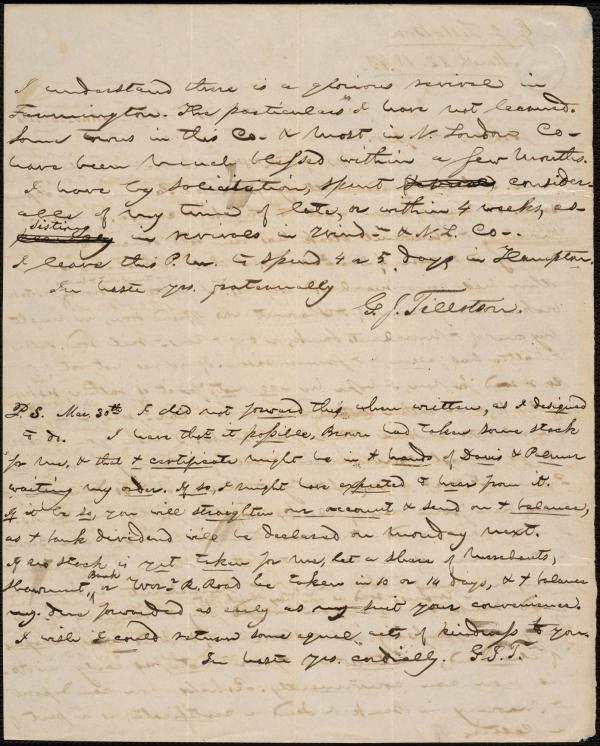 I understand there is a glorious revival in
Farmington. The particulars I have not learned.
Some towns in this Co- & most in N. London Co-
have been much blessed within a few months.
I have by solicitation, spent consider-
able of my time of late, or within 4 weeks, as-
sisting in revivals in Wind- & N. L. Co-.
I leave this P.M. to spend 4 or 5 days in Hampton.
In haste yrs. fraternally
G. J. Tillotson.
P.S. Mar. 30th I did not forward this when written, as I designed
to do. I have thot it possible, Brown had taken some stock
for me, & that + certificate might be in + hands of Davis & Palmer
waiting my order. If so, I might have expected to hear from it.
If it be so, you will straighten our account & send on + balance,
as + bank dividend will be declared on Monday next.
If no stock is yet taken for me, let a share of Merchants,
Shawmut Bank, or Wor.r R. Road be taken in 10 or 14 days, & + balance
my due forwarded as early as may suit your convenience.
I wish I could return some equal acts of kindness to you.
In haste yrs. cordially. G.J.T.